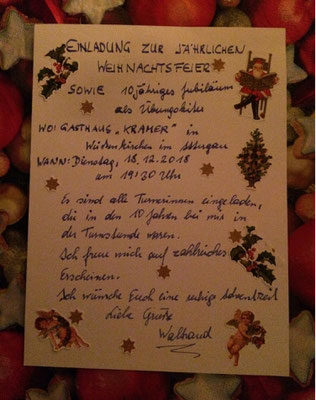 EINLADUNG ZUR JÄHRLICHEN
WEIHNACHTSFEIER
SOWIE 10jähriges Jubiläum
als Übungsleiter
WO: GASTHAUS „KRAMER" in
im
WANN: Dienstag, 18.12.2018
am 19:30 Uhr
Es sind alle Turnerinnen eingeladen,
die in den 10 Jahren bei mir in
der Turnstunde waren.
Ich freue mich auf zahlreiches
Erscheinen.
Ich wünsche Euch eine ruhige Adventzeit
Liebe Grüße
Waltraud